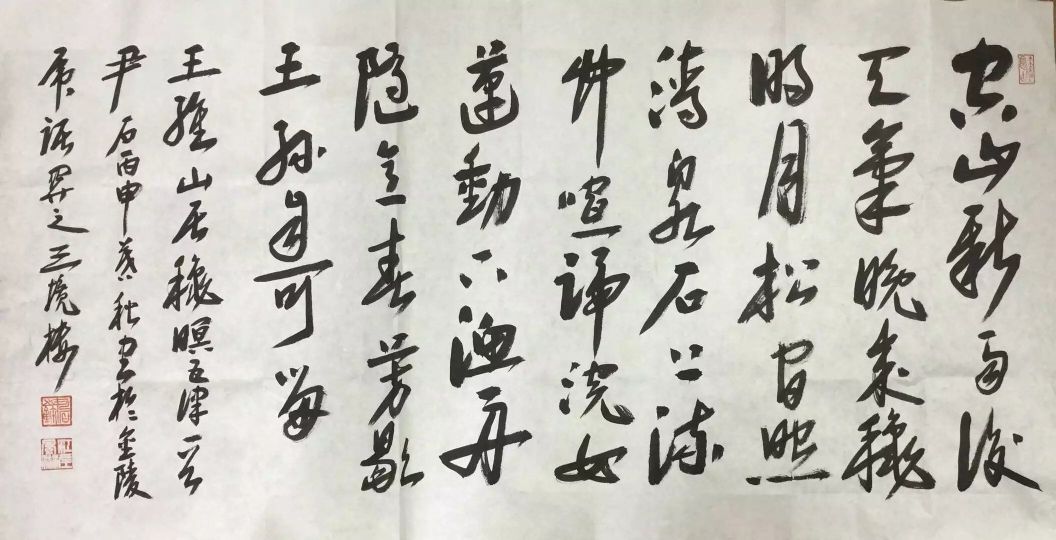 空山新雨後
天氣晚來穐
明月松間照
清泉石上流
竹喧歸浣女
蓮動下漁舟
隨意春芳歇
王孫自可留
王維山居穐暝五律一首
尹石丙申暮秋書於金陵
虎踞關之三境樓